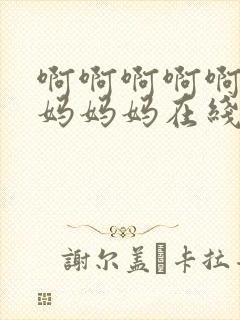 啊啊啊啊啊
妈妈妈在綫
謝尔盖 卡拉